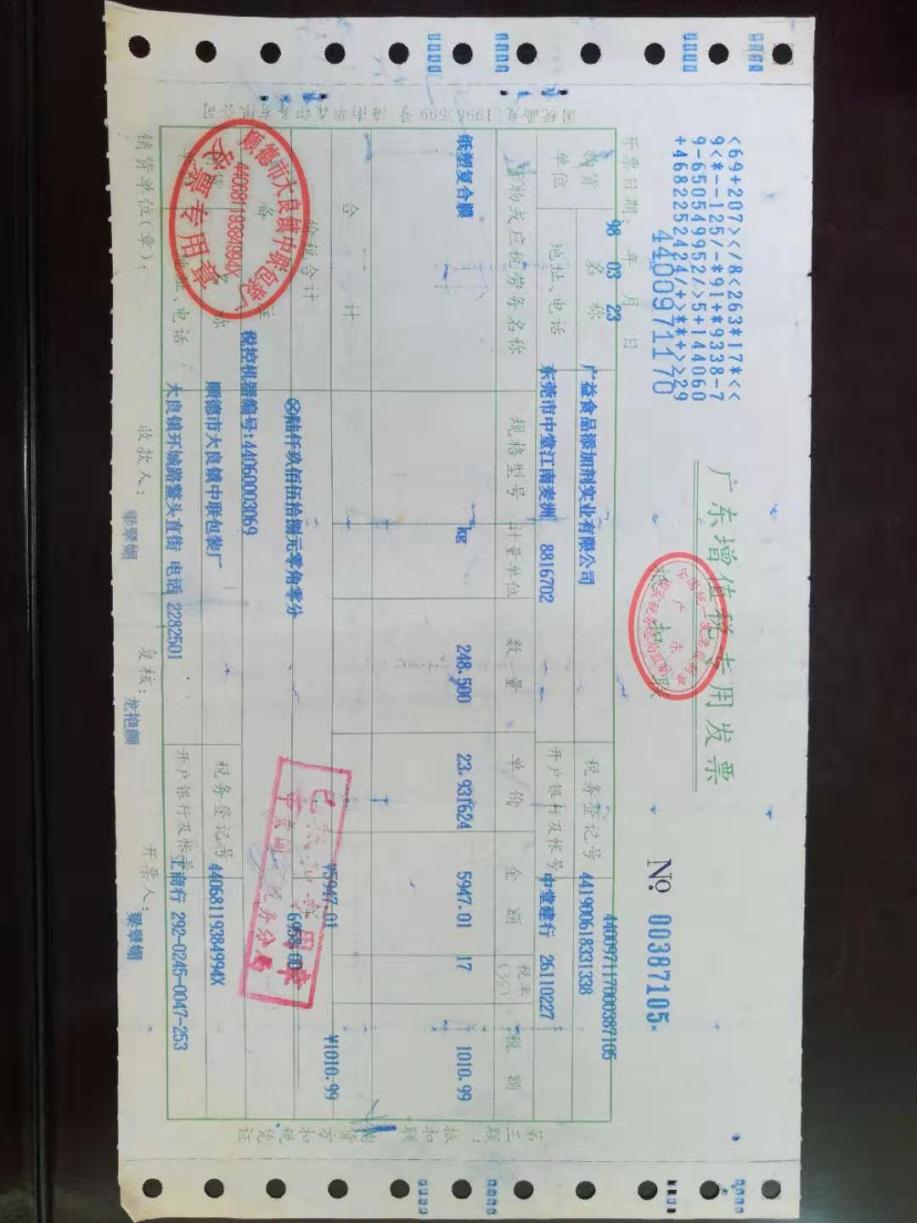 <69+207></8<263*17*<<
9<*--125/-*91+*9338-7
9-6505499952/>5+144060
+4682252424/+>**+>>29
4400971170
广东增值税专用发票
抵扣联
№ 00387105
开票日期: 98 年 03 月 23 日
440097117000387105
购货单位 名称 广益食品添加剂实业有限公司 税务登记号 441900618331338
地址、电话 东莞市中堂江南麦洲 8816702 开户银行及帐号 中堂建行 26110227
货物或应税劳务名称 规格型号 计量单位 数量 单价 金额 税率(%) 税额
纸塑复合袋 KG 248.500 23.931624 5947.01 17 1010.99
合计 ¥5947.01 ¥1010.99
价税合计 ⊗陆仟玖佰伍拾捌元零角零分 6958.00
备注 税控机器编号:44060003069
销货单位 名称 顺德市大良镇中联包装厂 税务登记号 44068119384994X
地址、电话 大良镇环城路鳌头直街 电话 2282501 开户银行及帐号 工商行 292-0245-0047-253
销货单位(章): 收款人: 梁翠媚 复核: 龙艳颜 开票人: 梁翠媚
第二联:抵扣联 购货方扣税凭证
顺德市大良镇中联包装厂
44068119384994X
发票专用章
全国统一发票监制章
广东
国家税务总局监制